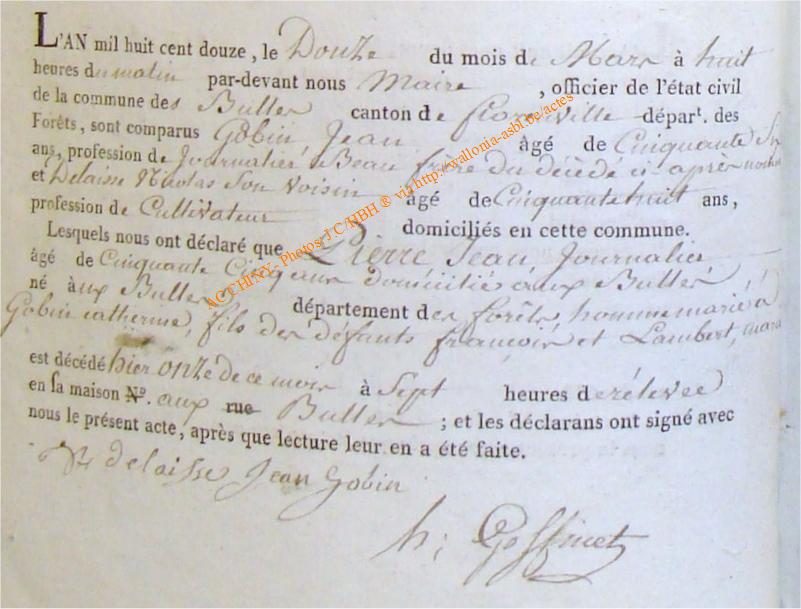 L'AN mil huit cent douze, le Douze du mois de Mars à huit
heures du matin par-devant nous Maire, officier de l'état civil
de la commune des Bulles canton de florenville départ. des
Forêts, sont comparus Gobin Jean âgé de Cinquante Six
ans, profession de Journalier Beau frere du décédé ci après nommé
et Delaisse Nicolas Son Voisin âgé de Cinquante huit ans,
profession de Cultivateur domiciliés en cette commune.
Lesquels nous ont déclaré que Pierre Jean Journalier
âgé de Cinquante Cinq ans domicilié aux Bulles
né aux Bulles département des forêts, homme marié à
Gobin catherine, fils des défunts françois et Lambert,
est décédé hier onze de ce mois à Sept heures de rélevée
en sa maison No. aux rue Bulles; et les déclarans ont signé avec
nous le présent acte, après que lecture leur en a été faite.
delaisse Jean Gobin
h: Goffinet
ACCHINY- Photos/J C/HBH ® via http://wallonia-asbl.be/actes